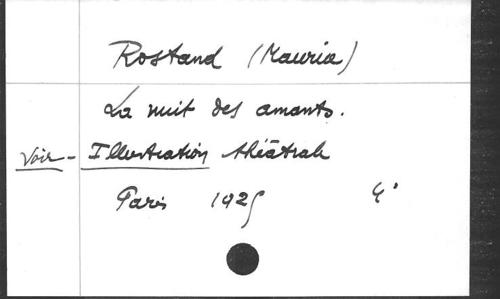 Rostand (Maurice)
La nuit des amants.
Voir - Illustration théâtrale
Paris 1925 4°